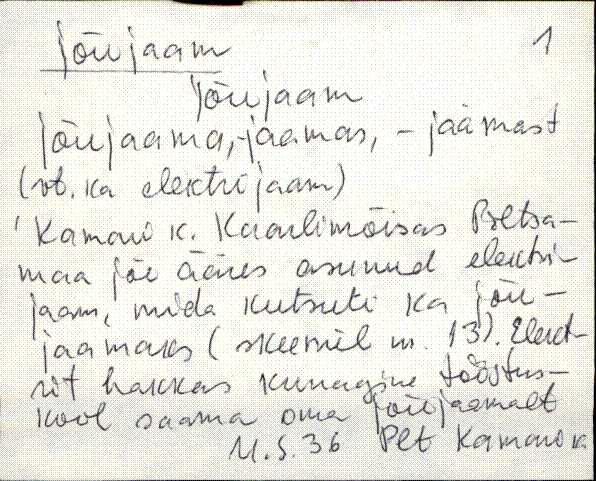 jõujaam 1
jõujaam
jõujaama, -jaamas, -jaamast
(vt. ka elektrijaam)
Kamari k. Kaarlimõisas Põltsa-
maa jõe ääres asunud elektri-
jaam, mida kutsuti ka jõu-
jaamaks (skeemil nr. 13). Elekt-
rit hakkas kunagine tööstus-
kool saama oma jõujaamalt
M.S. 36 Plt Kamari k